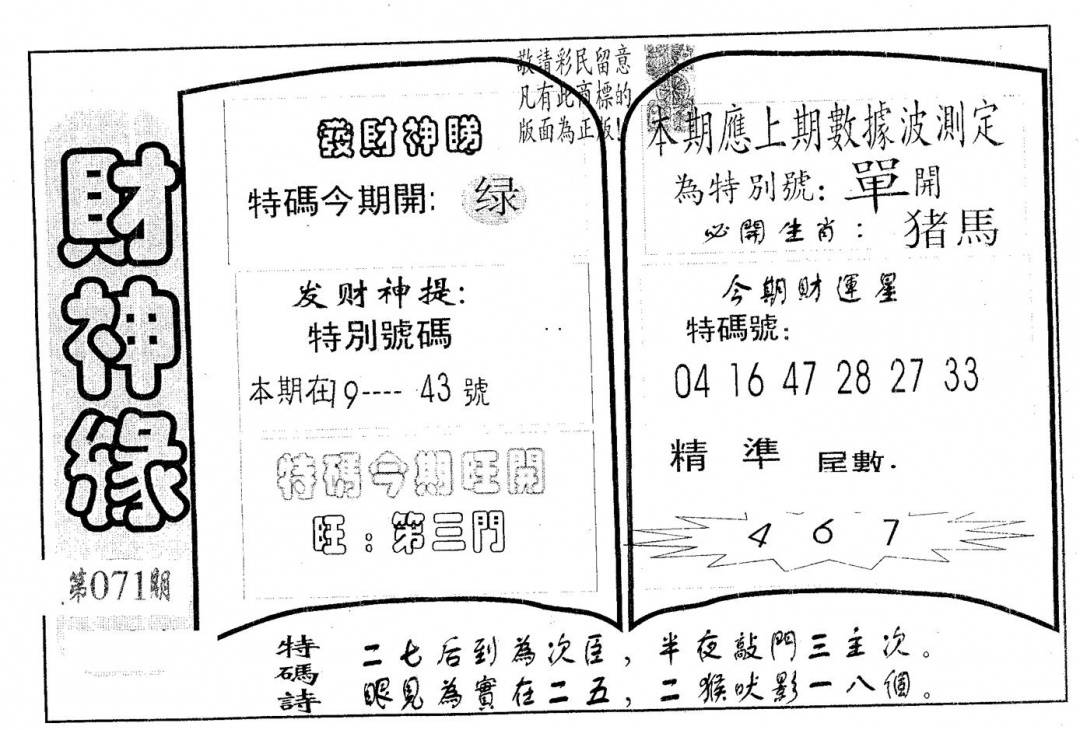 財神緣
第071期
敬請彩民留意
凡有此商標的
版面為正版!
發財神睇
特碼今期開: 绿
发财神提:
特別號碼
本期在19----43號
特碼今期旺開
旺:第三門
本期應上期數據波測定
為特別號:單開
必開生肖:猪馬
今期财運星
特碼號:
04 16 47 28 27 33
精 準 尾數.
4 6 7
特碼詩
二七后到為次臣,半夜敲門三主次。
眼見為實在二五,二猴吠影一八個。